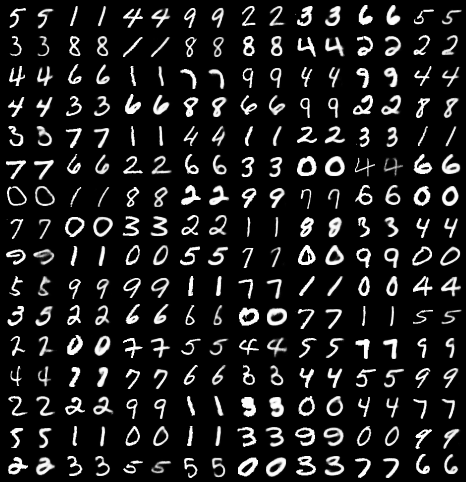 5 5 1 1 4 4 9 9 2 2 3 3 6 6 5 5
3 3 8 8 / / 8 8 8 8 4 4 2 2 2 2
4 4 6 6 1 1 7 7 9 9 4 4 9 9 4 4
4 4 3 3 6 6 8 8 6 6 9 9 2 2 8 8
3 3 7 7 1 1 4 4 1 1 2 2 3 3 / /
7 7 6 6 2 2 6 6 3 3 0 0 4 4 6 6
0 0 / / 8 8 2 2 9 9 7 7 6 6 0 0
7 7 0 0 3 3 2 2 1 1 8 8 3 3 4 4
1 1 0 0 5 5 7 7 0 0 9 9 0 0
5 5 9 9 9 9 1 1 7 7 / / 0 0 4 4
3 5 2 2 6 6 6 6 0 0 7 7 1 1 5 5
2 2 0 0 7 7 5 5 4 4 5 5 7 7 9 9
4 4 7 7 7 7 6 6 3 3 4 4 5 5 9 9
2 2 2 2 9 9 1 1 3 3 0 0 4 4 7 7
5 5 1 1 0 0 1 1 3 3 9 9 0 0 9 9
2 2 3 3 5 5 5 5 0 0 3 3 7 7 6 6